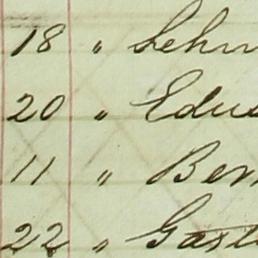 18 " Lehm
20 " Edu
11 " Ber
22 " Gast